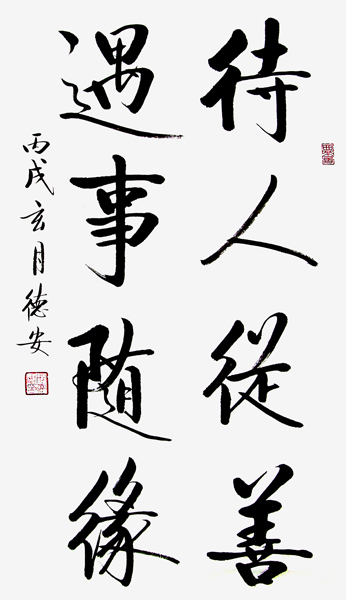 待人從善
遇事随緣
丙戌玄月德安